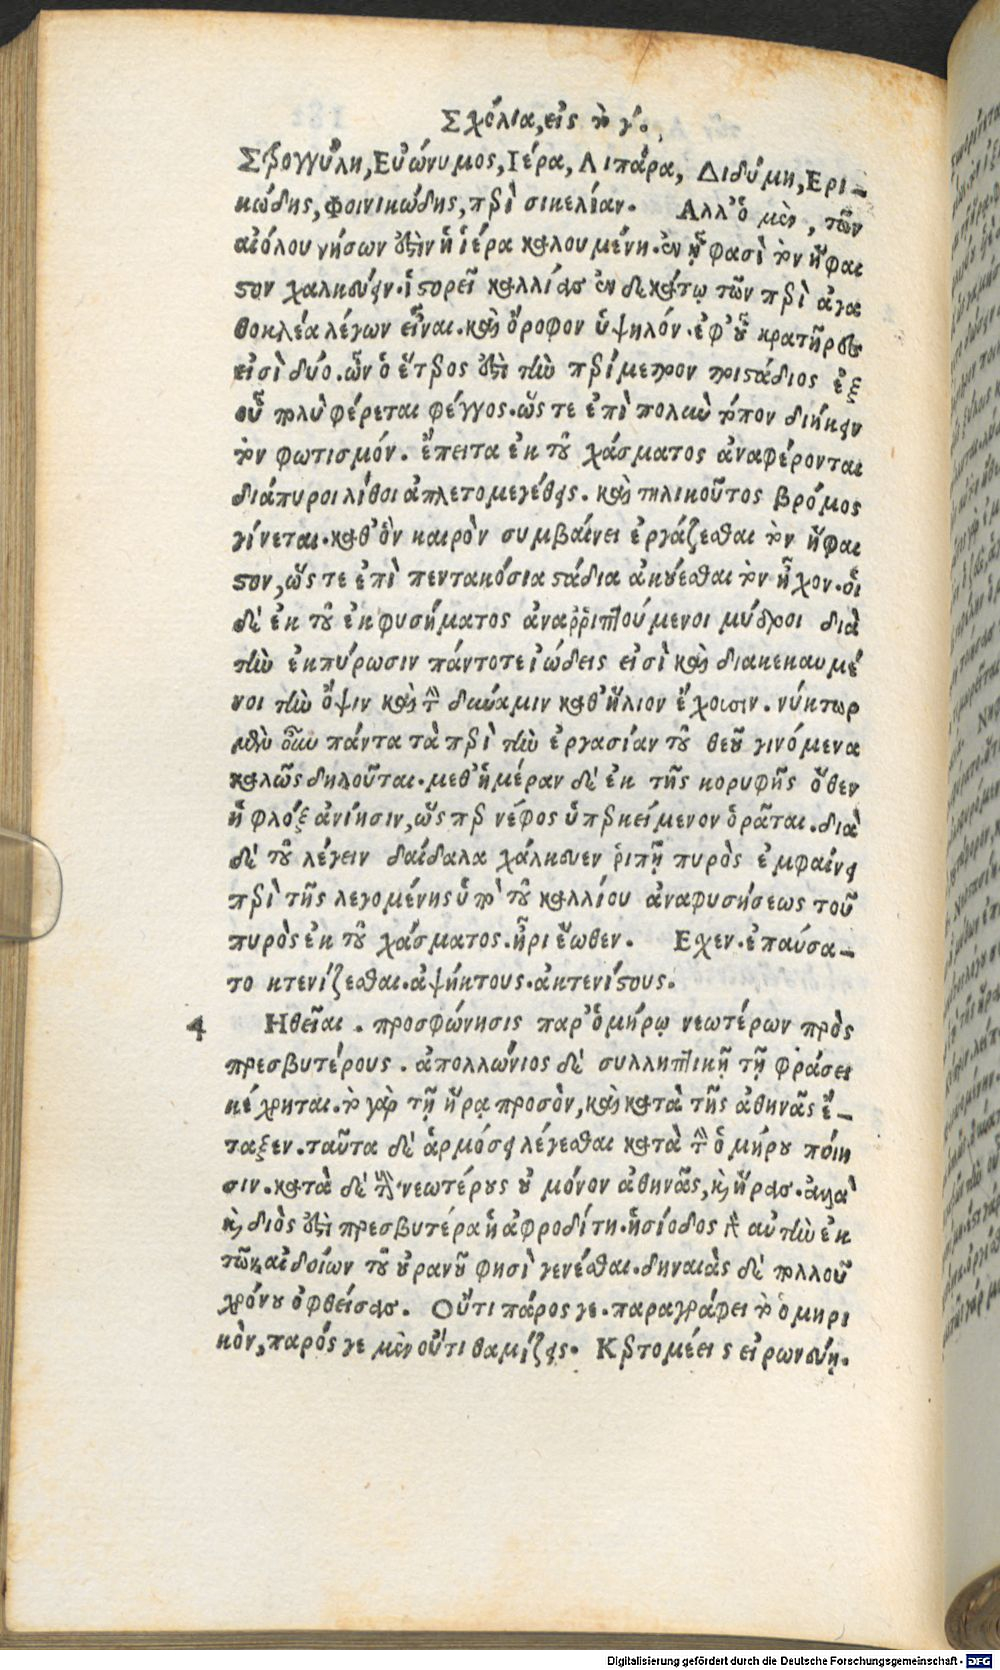 Σχόλια, εἰς τὸ γ΄.
Στρογγύλη, Εὐώνυμος, Ιέρα, Λιπάρα, Διδύμη, Ερι-
κώδης, Φοινικώδης, περὶ σικελίαν. Αλλ' ὁ μὲν, τῶν
αἰόλου νήσων ἐστὶν ἡ ἱέρα καλουμένη. ἐν ᾗ φασὶ τὸν ἥφαι
στον χαλκεύειν. ἱστορεῖ καλλίας ἐν δεκάτῳ τῶν περὶ ἀγα
θοκλέα λέγων εἶναι. καὶ ὄροφον ὑψηλόν. ἐφ' οὗ κρατῆρες
εἰσὶ δύο. ὧν ὁ ἕτερος ἐστὶ τὴν περίμετρον τριστάδιος ἐξ
οὗ πολὺ φέρεται φέγγος. ὥστε ἐπὶ πολὺν τόπον διήκειν
τὸν φωτισμόν. ἔπειτα ἐκ τοῦ χάσματος ἀναφέρονται
διάπυροι λίθοι ἀπλετομεγέθεις. καὶ τηλικοῦτος βρόμος
γίνεται. καθ' ὃν καιρὸν συμβαίνει ἐργάζεσθαι τὸν ἥφαι
στον, ὥστε ἐπὶ πεντακόσια στάδια ἀκούεσθαι τὸν ἦχον. οἱ
δὲ ἐκ τοῦ ἐκφυσήματος ἀναῤῥιπτούμενοι μύδροι διὰ
τὴν ἐκπύρωσιν πάντοτε ἰώδεις εἰσὶ καὶ διακεκαυμέ
νοι τὴν ὄψιν καὶ τὴν δύναμιν καθ' ἥλιον ἔχουσιν. νύκτωρ
μὲν οὖν πάντα τὰ περὶ τὴν ἐργασίαν τοῦ θεοῦ γινόμενα
καλῶς δηλοῦται. μεθ' ἡμέραν δὲ ἐκ τῆς κορυφῆς ὅθεν
ἡ φλόξ ἀνίησιν, ὥσπερ νέφος ὑπερκείμενον ὁρᾶται. διὰ
δὲ τοῦ λέγειν δαίδαλα χάλκευεν ῥιπῇ πυρὸς ἐμφαίνει
περὶ τῆς λεγομένης ὑπὸ τοῦ καλλίου ἀναφυσήσεως τοῦ
πυρὸς ἐκ τοῦ χάσματος. ἦρι ἕωθεν. Εχεν. ἐπαύσα-
το κτενίζεσθαι. ἀψήκτους. ἀκτενίστους.
4 Ηθεῖαι. προσφώνησις παρ' ὁμήρῳ νεωτέρων πρὸς
πρεσβυτέρους. ἀπολλώνιος δὲ συλληπτικῇ τῇ φράσει
κέχρηται. τὸ γὰρ τῇ ἥρᾳ προσὸν, καὶ κατὰ τῆς ἀθηνᾶς ἔ-
ταξεν. ταῦτα δὲ ἁρμόσει λέγεσθαι κατὰ τὴν ὁμήρου ποίη
σιν. κατὰ δὲ τοὺς νεωτέρους οὐ μόνον ἀθηνᾶς, καὶ ἥρας. ἀλλὰ
καὶ διὸς ἐστὶ πρεσβυτέρα ἡ ἀφροδίτη. ἡσίοδος γὰρ αὐτὴν ἐκ
τῶν αἰδοίων τοῦ οὐρανοῦ φησὶ γενέσθαι. δηναιὰς δὲ πολλοῦ
χρόνου ὀφθείσας. Οὔτι πάρος γε. παραγράφει τὸ ὁμηρι
κὸν, παρός γε μὲν οὔτι θαμίζεις. Κερτομέεις εἰρωνεύῃ.
Digitalisierung gefördert durch die Deutsche Forschungsgemeinschaft - DFG